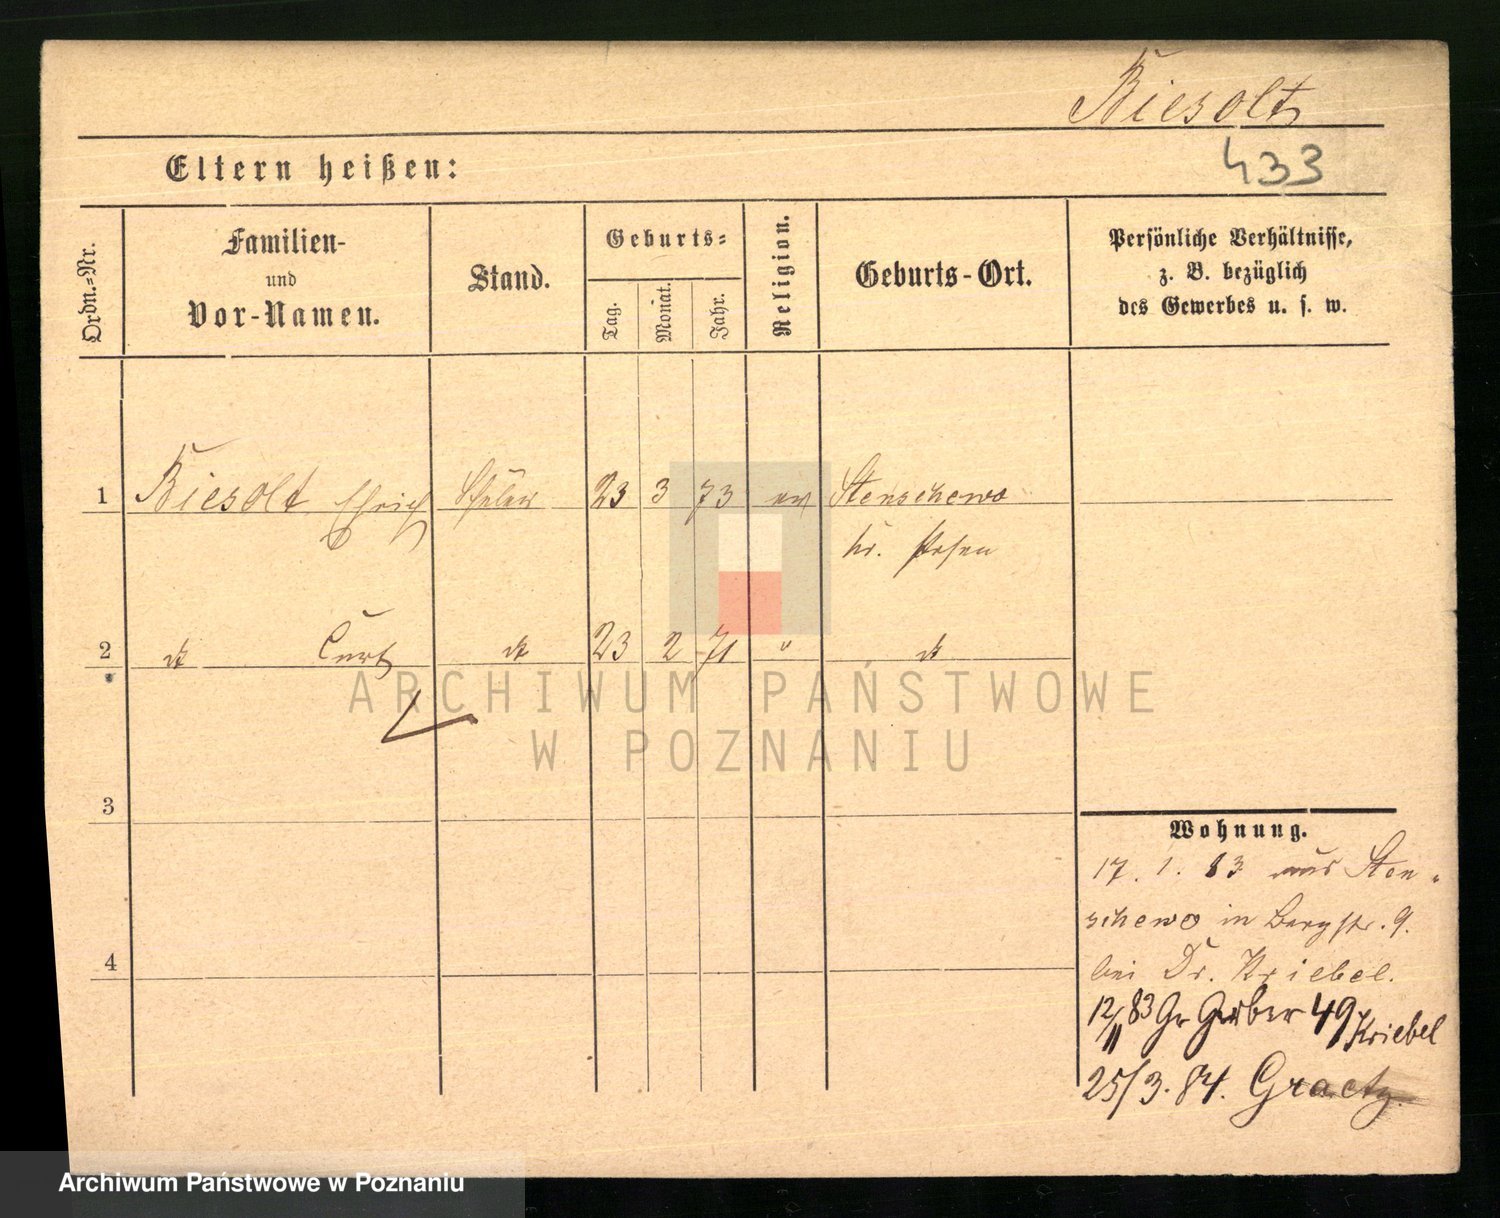 Biesolt
433
Eltern heißen:
Ordn.-Nr.
Familien-
und
Vor-Namen.
Stand.
Geburts-
Tag.
Monat.
Jahr.
Religion.
Geburts-Ort.
Persönliche Verhältnisse,
z. B. bezüglich
des Gewerbes u. s. w.
1 Biesolt Schüler 23 3 73 ev Stenschewo
Kr. Posen
2 dt Curt dt 23 2 71 " dt
ARCHIWUM PAŃSTWOWE
W POZNANIU
3
4
Wohnung.
17. 1. 83 aus Sten-
schewo in Bergstr. 9.
bei Dr. Kriebel.
12/11 83 Gr Gerber 49 Kriebel
25/3. 84. Graetz
Archiwum Państwowe w Poznaniu